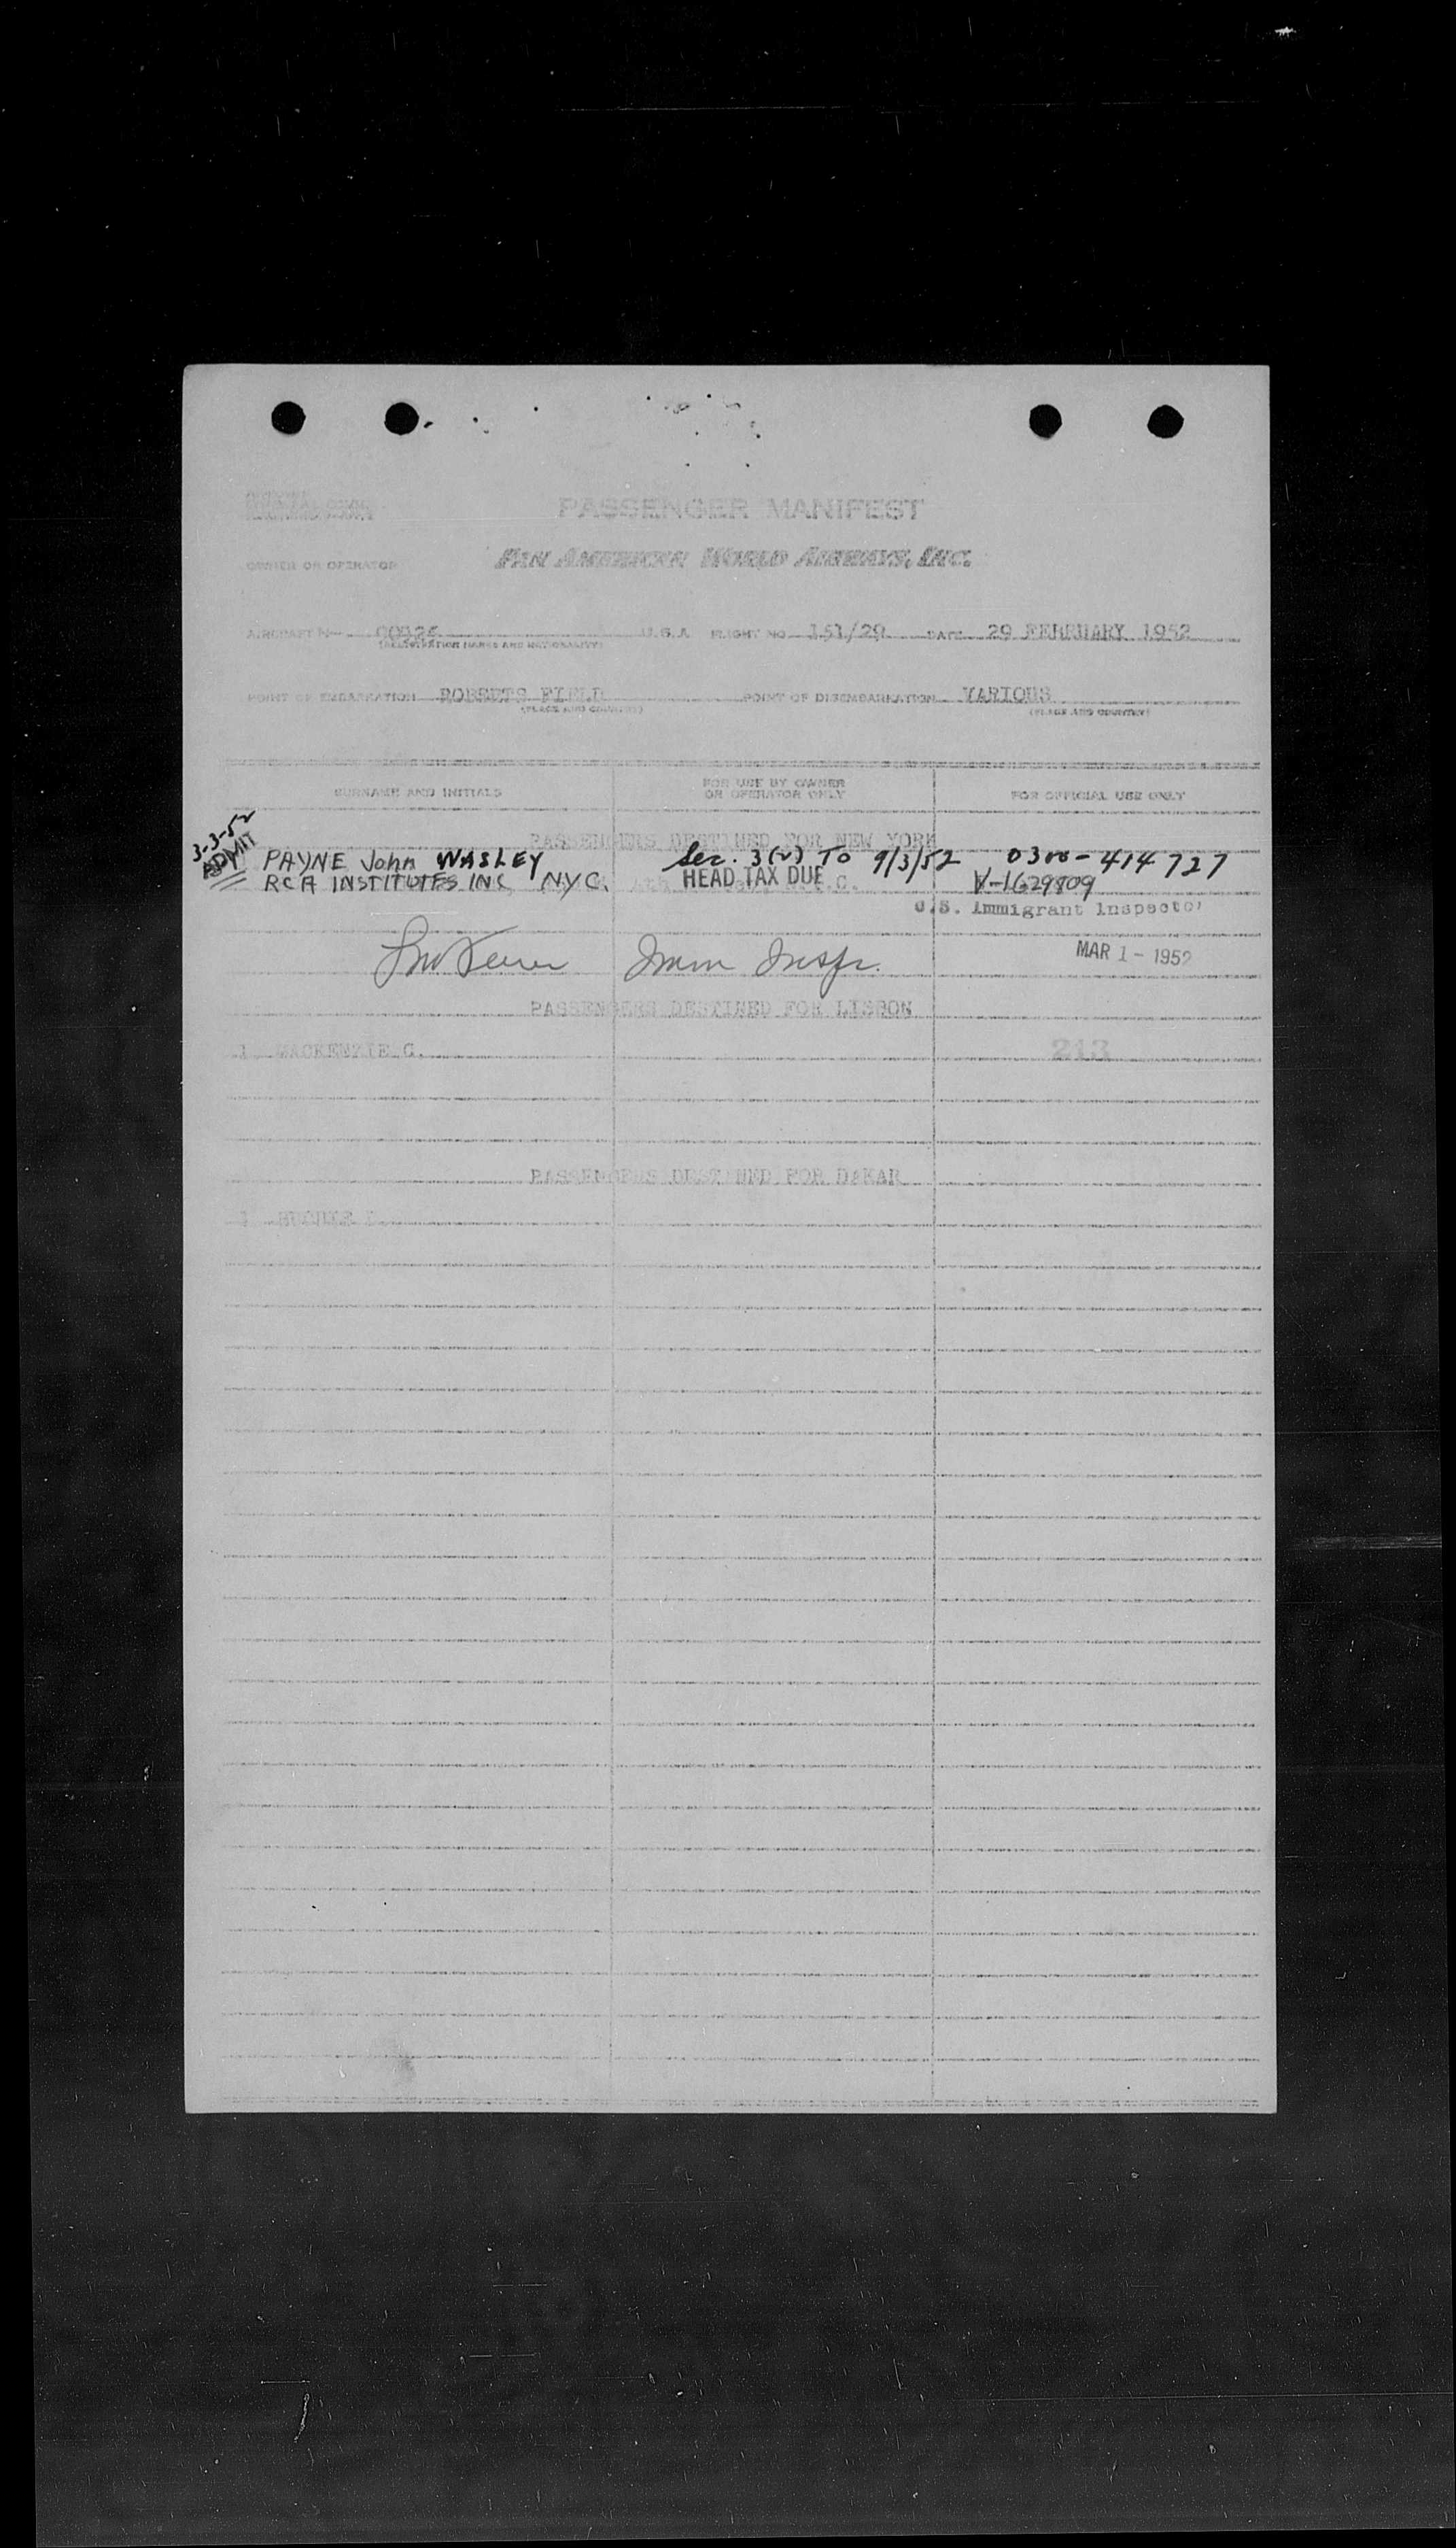 PASSENGER MANIFEST
OWNER OR OPERATOR PAN AMERICAN WORLD AIRWAYS, INC.
AIRCRAFT N- U.S.A FLIGHT NO 151/29 DATE 29 FEBRUARY 1952
(REGISTRATION MARKS AND NATIONALITY)
POINT OF EMBARKATION ROBERTS FIELD POINT OF DISEMBARKATION VARIOUS
(PLACE AND COUNTRY) (PLACE AND COUNTRY)
SURNAME AND INITIALS FOR USE BY OWNER OR OPERATOR ONLY FOR OFFICIAL USE ONLY
PASSENGERS DESTINED FOR NEW YORK
3-3-52
ADMIT
PAYNE John WASLEY Sec. 3(2) TO 9/3/52 0300-414727
RCA INSTITUTES INC NYC. HEAD TAX DUE V-1629809
U.S. Immigrant Inspector
Imm Inspr. MAR 1 - 1952
PASSENGERS DESTINED FOR LISBON
1 MACKENZIE G. 213
PASSENGERS DESTINED FOR DAKAR
1